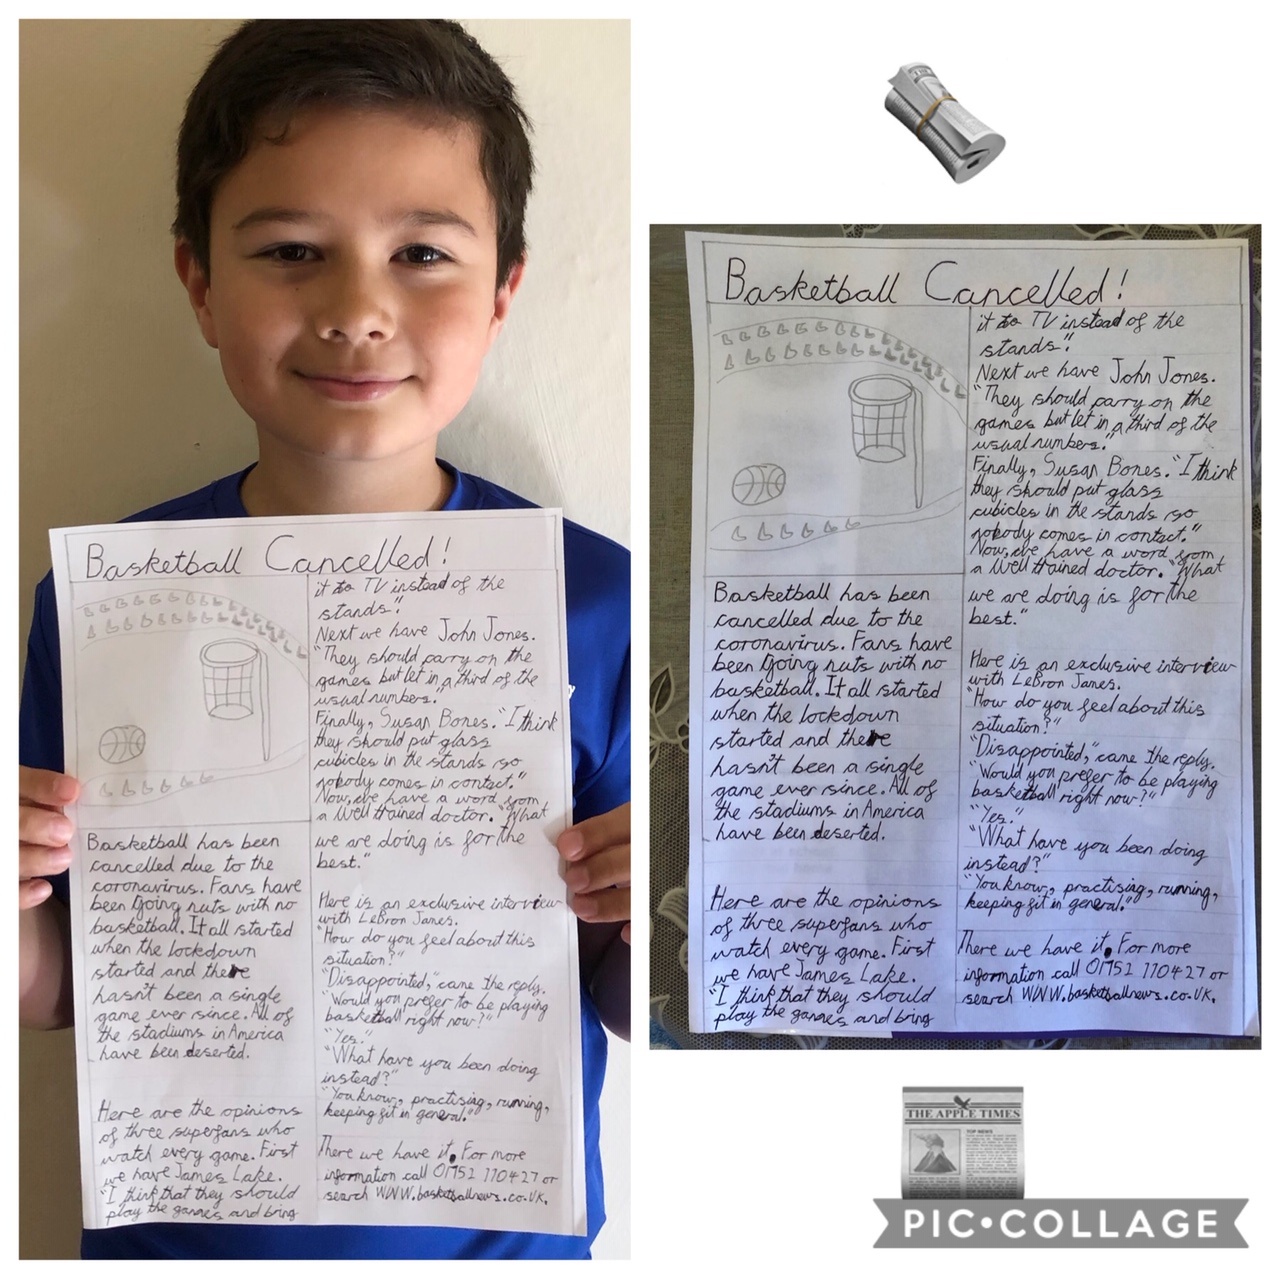 Basketball Cancelled!
Basketball has been
cancelled due to the
coronavirus. Fans have
been Going nuts with no
basketball. It all started
when the lockdown
started and there
hasn't been a single
game ever since. All of
the stadiums in America
have been deserted.
Here are the opinions
of three superfans who
watch every game. First
we have James Lake.
"I think that they should
play the games and bring
it to TV instead of the
stands".
Next we have John Jones.
"They should carry on the
games but let in a third of the
usual numbers."
Finally, Susan Bones. "I think
they should put glass
cubicles in the stands so
nobody comes in contact."
Now, we have a word from
a well trained doctor. "What
we are doing is for the
best."
Here is an exclusive interview
with LeBron James.
"How do you feel about this
situation?"
"Disappointed," came the reply.
"Would you prefer to be playing
basketball right now?"
"Yes."
"What have you been doing
instead?"
"You know, practising, running,
keeping fit in general."
There we have it. For more
information call 01752 110427 or
search WWW.basketballnews.co.UK.
Basketball Cancelled!
Basketball has been
cancelled due to the
coronavirus. Fans have
been Going nuts with no
basketball. It all started
when the lockdown
started and there
hasn't been a single
game ever since. All of
the stadiums in America
have been deserted.
Here are the opinions
of three superfans who
watch every game. First
we have James Lake.
"I think that they should
play the games and bring
it to TV instead of the
stands".
Next we have John Jones.
"They should carry on the
games but let in a third of the
usual numbers."
Finally, Susan Bones. "I think
they should put glass
cubicles in the stands so
nobody comes in contact."
Now, we have a word from
a well trained doctor. "What
we are doing is for the
best."
Here is an exclusive interview
with LeBron James.
"How do you feel about this
situation?"
"Disappointed," came the reply.
"Would you prefer to be playing
basketball right now?"
"Yes."
"What have you been doing
instead?"
"You know, practising, running,
keeping fit in general."
There we have it. For more
information call 01752 110427 or
search WWW.basketballnews.co.UK.
THE APPLE TIMES
TOP NEWS
PIC•COLLAGE